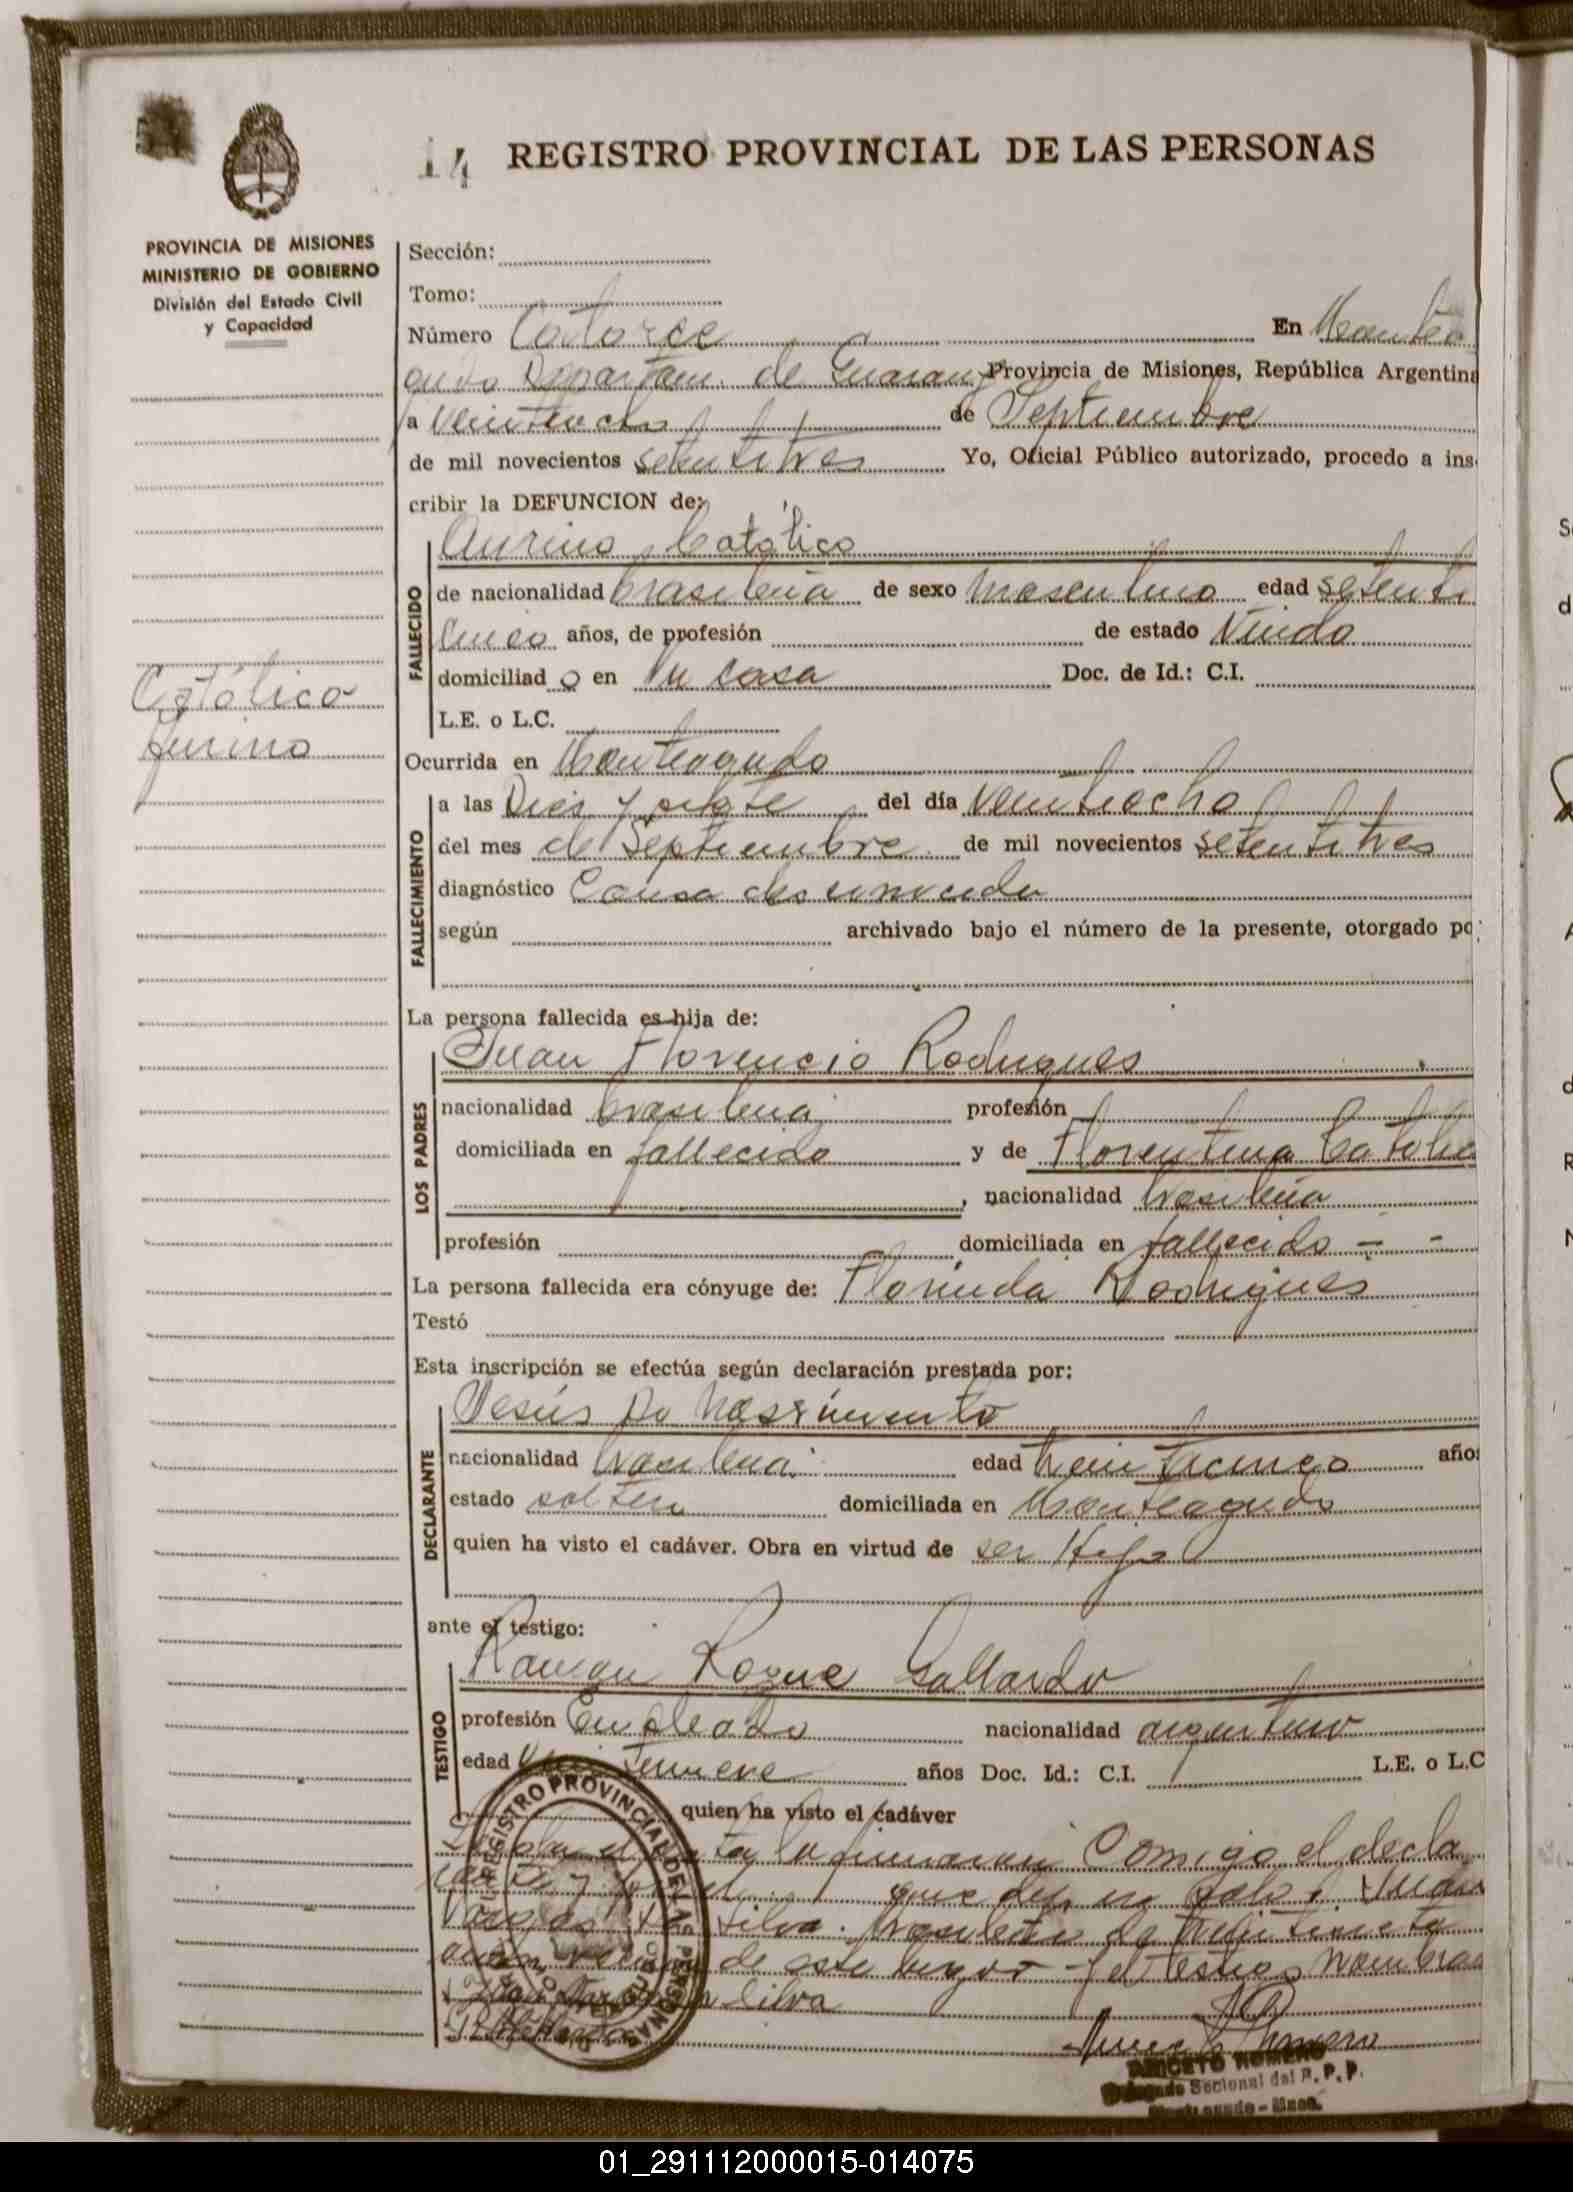 14 REGISTRO PROVINCIAL DE LAS PERSONAS
PROVINCIA DE MISIONES
MINISTERIO DE GOBIERNO
División del Estado Civil
y Capacidad
Católico
Aurino
Sección:
Tomo:
Número Catorce En Montea
gudo Departam. de Guarany Provincia de Misiones, República Argentina
a veintiocho de Septiembre
de mil novecientos setentitres Yo, Oficial Público autorizado, procedo a ins-
cribir la DEFUNCION de:
Aurino Católico
FALLECIDO
de nacionalidad brasileña de sexo masculino edad setenti
cinco años, de profesión de estado Viudo
domiciliado en su casa Doc. de Id.: C.I.
L.E. o L.C.
Ocurrida en Monteagudo
FALLECIMIENTO
a las Dies y siete del día veintiocho
del mes de Septiembre de mil novecientos setentitres
diagnóstico Causa desconocida
según archivado bajo el número de la presente, otorgado po
La persona fallecida es hija de:
Juan Florencio Rodrigues
LOS PADRES
nacionalidad brasileña profesión
domiciliada en fallecido y de Florentina Catolic
, nacionalidad brasileña
profesión domiciliada en fallecido - -
La persona fallecida era cónyuge de: Florinda Rodrigues
Testó
Esta inscripción se efectúa según declaración prestada por:
Jesús Do Nassimento
DECLARANTE
nacionalidad brasilera edad treinticinco años
estado soltero domiciliada en Monteagudo
quien ha visto el cadáver. Obra en virtud de ser Hijo
ante el testigo:
Ramon Roque Gallardo
TESTIGO
profesión Empleado nacionalidad argentino
edad Veintinueve años Doc. Id.: C.I. L.E. o L.C
quien ha visto el cadáver
la firmaran Comigo el decla
Juan
Vargas Da Silva
de este lugar testigo nombra
Silva
REGISTRO PROVINCIAL DE LAS PERSONAS
ANICETO ROMERO
Delegado Seccional del R. P. P.
Monteagudo - Mnes.
01_291112000015-014075